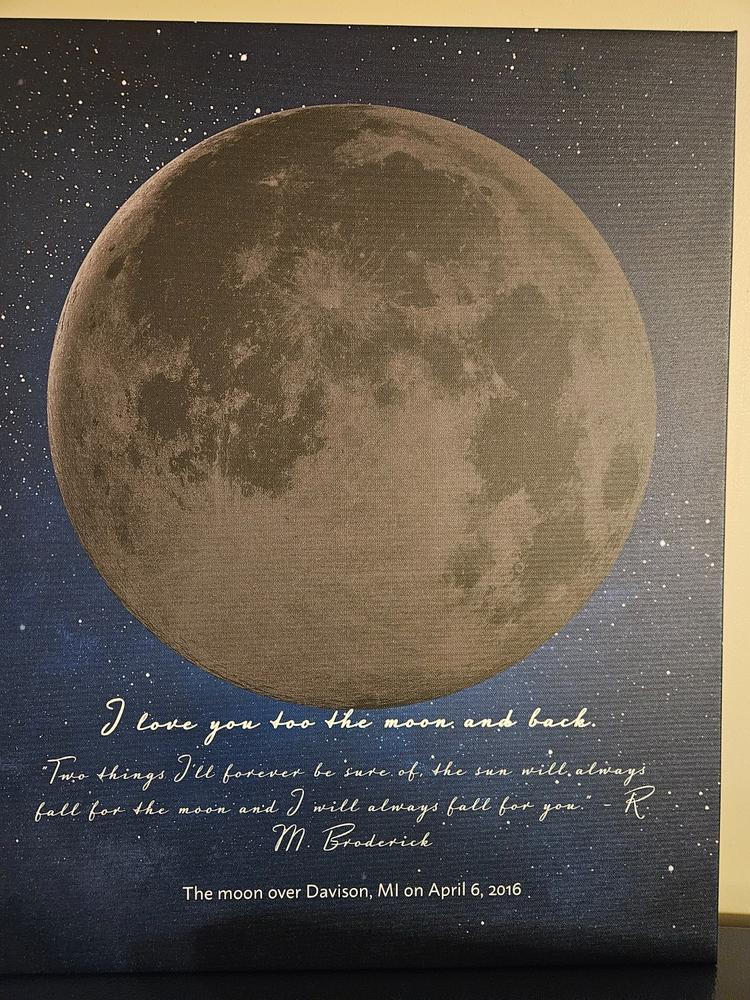 I love you too the moon and back.
"Two things I'll forever be sure of, the sun will always
fall for the moon and I will always fall for you." - R
M. Broderick
The moon over Davison, MI on April 6, 2016